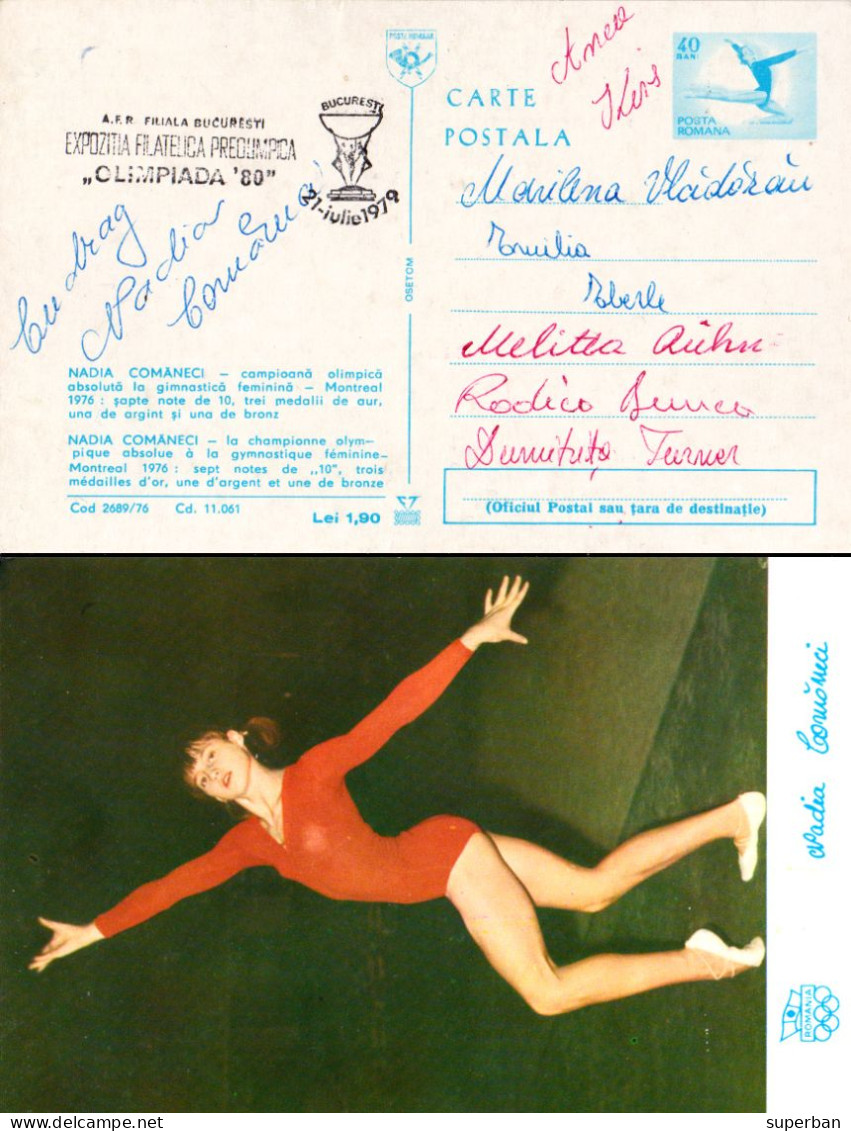 POSTA ROMANA
A.F.R. FILIALA BUCUREȘTI
EXPOZIȚIA FILATELICA PREOLIMPICA
„OLIMPIADA '80”
BUCUREȘTI
21-iulie 1979
Cu drag
Nadia
Comăneci
CARTE
POSTALA
40
BANI
POSTA
ROMANA
Anca
Kiss
Marilena Vlădărău
Emilia
Eberle
Melitta Rühn
Rodica Dunca
Dumitrița Turner
OSETOM
NADIA COMĂNECI – campioană olimpică
absolută la gimnastică feminină – Montreal
1976 : șapte note de 10, trei medalii de aur,
una de argint și una de bronz
NADIA COMĂNECI – la championne olym–
pique absolue à la gymnostique féminine–
Montreal 1976 : sept notes de „10”, trois
médailles d'or, une d'argent et une de bronze
Cod 2689/76 Cd. 11.061
Lei 1,90
(Oficiul Postal sau țara de destinație)
Nadia Comăneci
ROMANIA
delcampe.net
superban